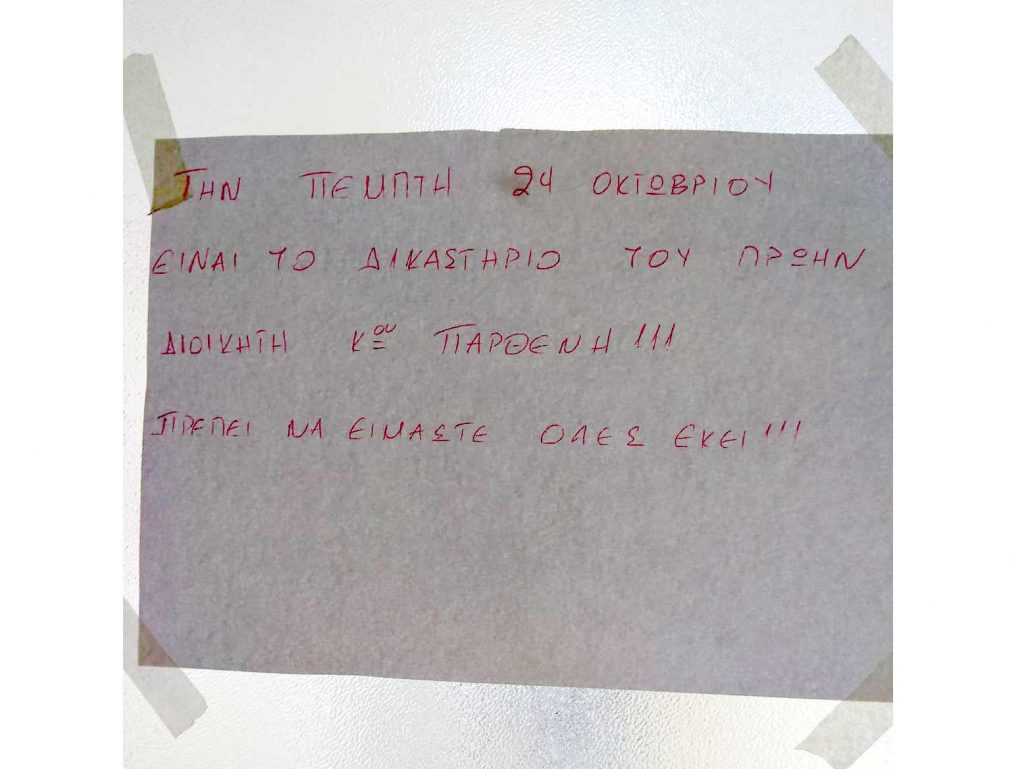 ΤΗΝ ΠΕΜΠΤΗ 24 ΟΚΤΩΒΡΙΟΥ
ΕΙΝΑΙ ΤΟ ΔΙΚΑΣΤΗΡΙΟ ΤΟΥ ΠΡΩΗΝ
ΔΙΟΙΚΗΤΗ Κου ΠΑΡΘΕΝΗ!!!
ΠΡΕΠΕΙ ΝΑ ΕΙΜΑΣΤΕ ΟΛΕΣ ΕΚΕΙ!!!